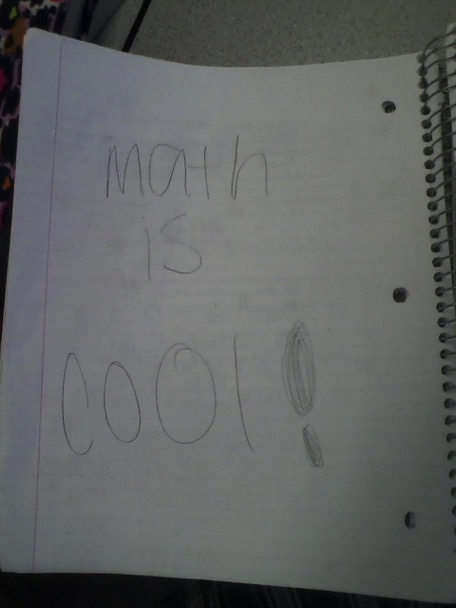 math
is
cool!